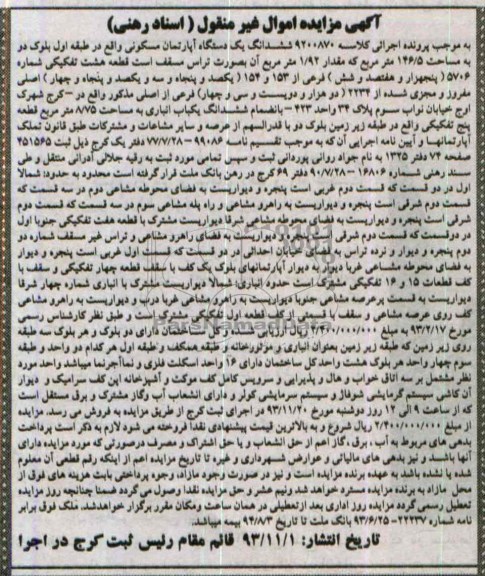 آگهی مزایده اموال غیر منقول ( اسناد رهنی)
به موجب پرونده اجرائی کلاسه ۹۲۰۰۸۷۰ ششدانگ یک دستگاه آپارتمان مسکونی واقع در طبقه اول بلوک دو
به مساحت ۱۴۶/۵ متر مربع که مقدار ۱/۹۲ متر مربع آن بصورت تراس مسقف است قطعه هشت تفکیکی شماره
۵۷۰۶ ( پنجهزار و هفتصد و شش ) فرعی از ۱۵۳ و ۱۵۴ ( یکصد و پنجاه و سه و یکصد و پنجاه و چهار ) اصلی
مفروز و مجزی شده از ۲۲۳۴ ( دو هزار و دویست و سی و چهار) فرعی از اصلی مذکور واقع در -کرج شهرک
اوج خیابان نواب سوم پلاک ۳۴ واحد ۴۲۳ -بانضمام ششدانگ یکباب انباری به مساحت ۸/۷۵ متر مربع قطعه
پنج تفکیکی واقع در طبقه زیر زمین بلوک دو با قدرالسهم از عرصه و سایر مشاعات و مشترکات طبق قانون تملک
آپارتمانها و آیین نامه اجرایی آن که به موجب تقسیم نامه ۹۹۰۸۶ -۷۷/۸/۲۸ دفتر یک کرج ذیل ثبت ۴۵۱۵۶۵
صفحه ۷۴ دفتر ۱۳۲۵ به نام جواد روانی پوردانی ثبت و سپس تمامی مورد ثبت به رقیه جلالی آدرانی منتقل و طی
سند رهنی شماره ۱۶۸۰۶ - ۹۰/۷/۲۸ دفتر ۶۹ کرج در رهن بانک ملت قرار گرفته است محدود به حدود: شمالا
اول در دو قسمت که قسمت دوم غربی است پنجره و دیواریست به فضای محوطه مشاعی دوم در سه قسمت که
قسمت دوم شرقی است پنجره و دیواریست به راهرو مشاعی و راه پله مشاعی سوم در سه قسمت که قسمت دوم
شرقی است پنجره و دیواریست به فضای محوطه مشاعی شرقا دیواریست مشترک با قطعه هفت تفکیکی جنوبا اول
در دوقسمت که قسمت دوم شرقی و دیواریست به فضای راهرو مشاعی و تراس غیر مسقف شماره دو
دوم پنجره و دیوار و نرده تراس به فضای خیابان احداثی در دو قسمت که قسمت اول غربی است پنجره و دیوار
به فضای محوطه مشاعی غربا دیوار به دیوار آپارتمانهای بلوک یک کف با سقف قطعه چهار تفکیکی و سقف با
کف قطعات ۱۵ و ۱۶ تفکیکی مشترک است حدود انباری: شمالا دیواریست مشترک با انباری شماره چهار شرقا
دیواریست به قسمت پرعرصه مشاعی جنوبا دیواریست به راهرو مشاعی غربا درب و دیواریست به راهرو مشاعی
کف روی عرصه مشاعی و سقف با قسمتی از کف قطعه اول تفکیکی مشترک است و طبق نظر کارشناس رسمی
مورخ ۹۳/۲/۱۷ به مبلغ ۲/۴۰۰/۰۰۰/۰۰۰ دارای دو بلوک و هر بلوک سه طبقه
روی زیر زمین که طبقه زیر زمین بعنوان انباری و موتورخانه و طبقه همکف و طبقه اول هر کدام دو واحد و طبقه
سوم چهار واحد هر بلوک هشت واحد کل ساختمان دارای ۱۶ واحد اسکلت فلزی و نماآجرنما میباشد واحد مورد
نظر مشتمل بر سه اتاق خواب و هال و پذیرایی و سرویس کامل کف موکت و آشپزخانه اپن کف سرامیک و دیوار
آن کاشی سیستم گرمایشی شوفاژ و سیستم سرمایشی کولر و دارای انشعاب آب وگاز مشترک و برق مستقل است
که از ساعت ۹ الی ۱۲ روز دوشنبه مورخ ۹۳/۱۱/۲۰ در اجرای ثبت کرج از طریق مزایده به فروش می رسد. مزایده
از مبلغ ۲/۴۰۰/۰۰۰/۰۰۰ ریال شروع و به بالاترین قیمت پیشنهادی نقدا فروخته می شود لازم به ذکر است پرداخت
بدهی های مربوط به آب ، برق ، گاز اعم از حق انشعاب و یا حق اشتراک و مصرف درصورتی که مورد مزایده دارای
آنها باشد و نیز بدهی های مالیاتی و عوارض شهرداری و غیره تا تاریخ مزایده اعم از اینکه رقم قطعی آن معلوم
شده یا نشده باشد به عهده برنده مزایده است و نیز در صورت وجود مازاد، وجوه پرداختی بابت هزینه های فوق از
محل مازاد به برنده مزایده مسترد خواهد شد ونیم عشر و حق مزایده نقدا وصول می گردد ضمنا چنانچه روز مزایده
تعطیل رسمی گردد مزایده روز اداری بعد ازتعطیلی در همان ساعت ومکان مقرر برگزار خواهدشد. ملک فوق برابر
نامه شماره ۲۲۲۳۷- ۹۳/۶/۲۵ بانک ملت تا تاریخ ۹۴/۸/۳ بیمه میباشد.
تاریخ انتشار: ۹۳/۱۱/۱ قائم مقام رئیس ثبت کرج در اجرا